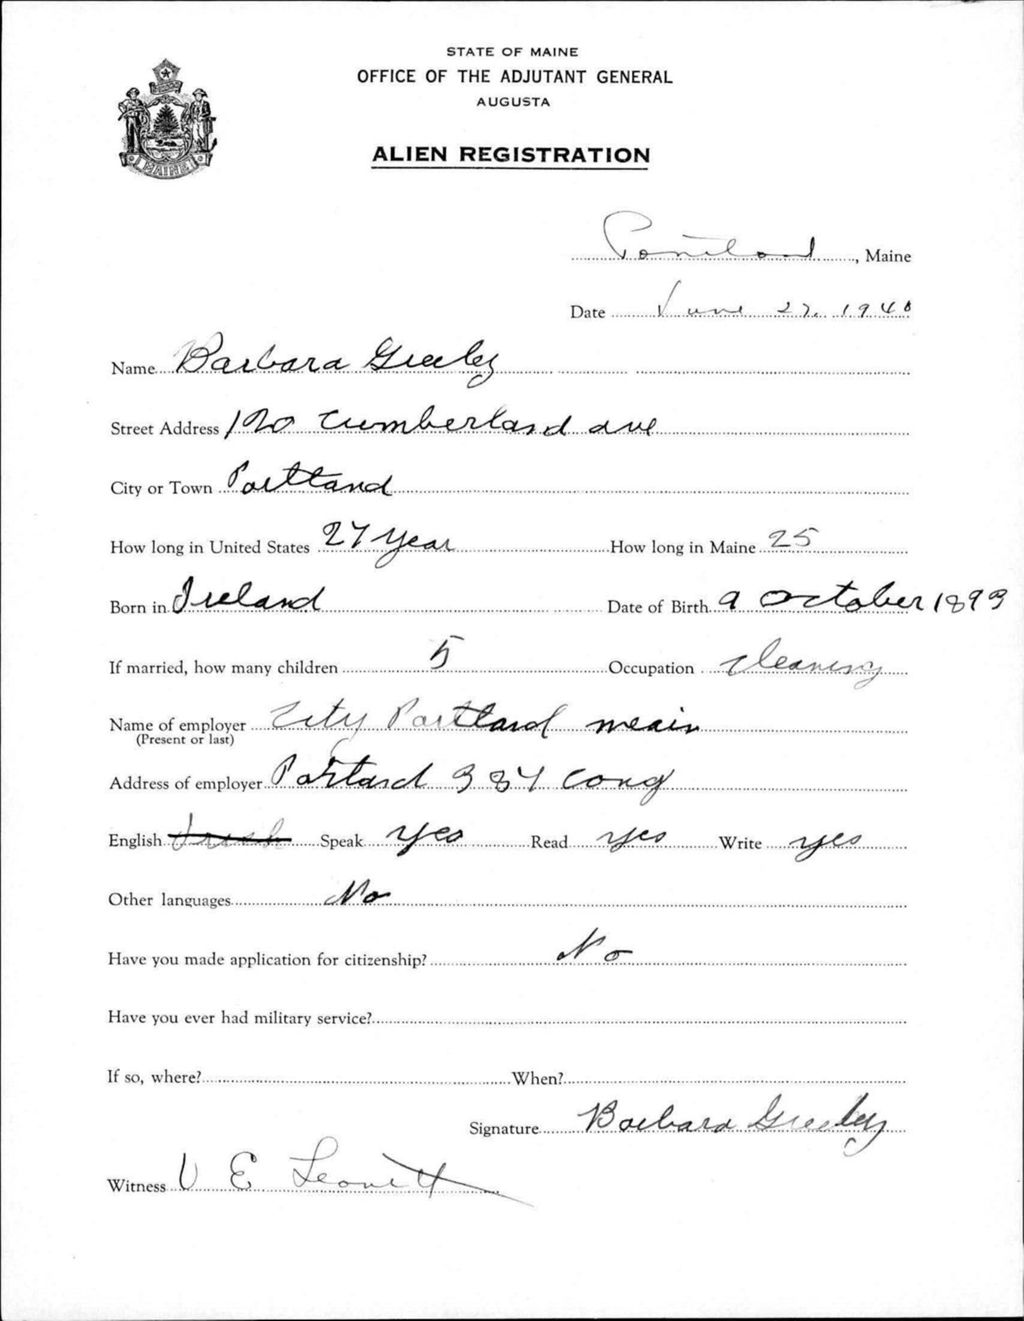 STATE OF MAINE
OFFICE OF THE ADJUTANT GENERAL
AUGUSTA
ALIEN REGISTRATION
MAINE
Portland, Maine
Date June 27, 1940
Name Barbara Greeley
Street Address 120 Cumberland ave
City or Town Portland
How long in United States 27 year How long in Maine 25
Born in Ireland Date of Birth 9 October 1893
If married, how many children 5 Occupation cleaning
Name of employer City Portland meain
(Present or last)
Address of employer Portland 384 Cong
English Irish Speak yes Read yes Write yes
Other languages No
Have you made application for citizenship? No
Have you ever had military service?
If so, where? When?
Signature Barbara Greeley
Witness V E Leavitt